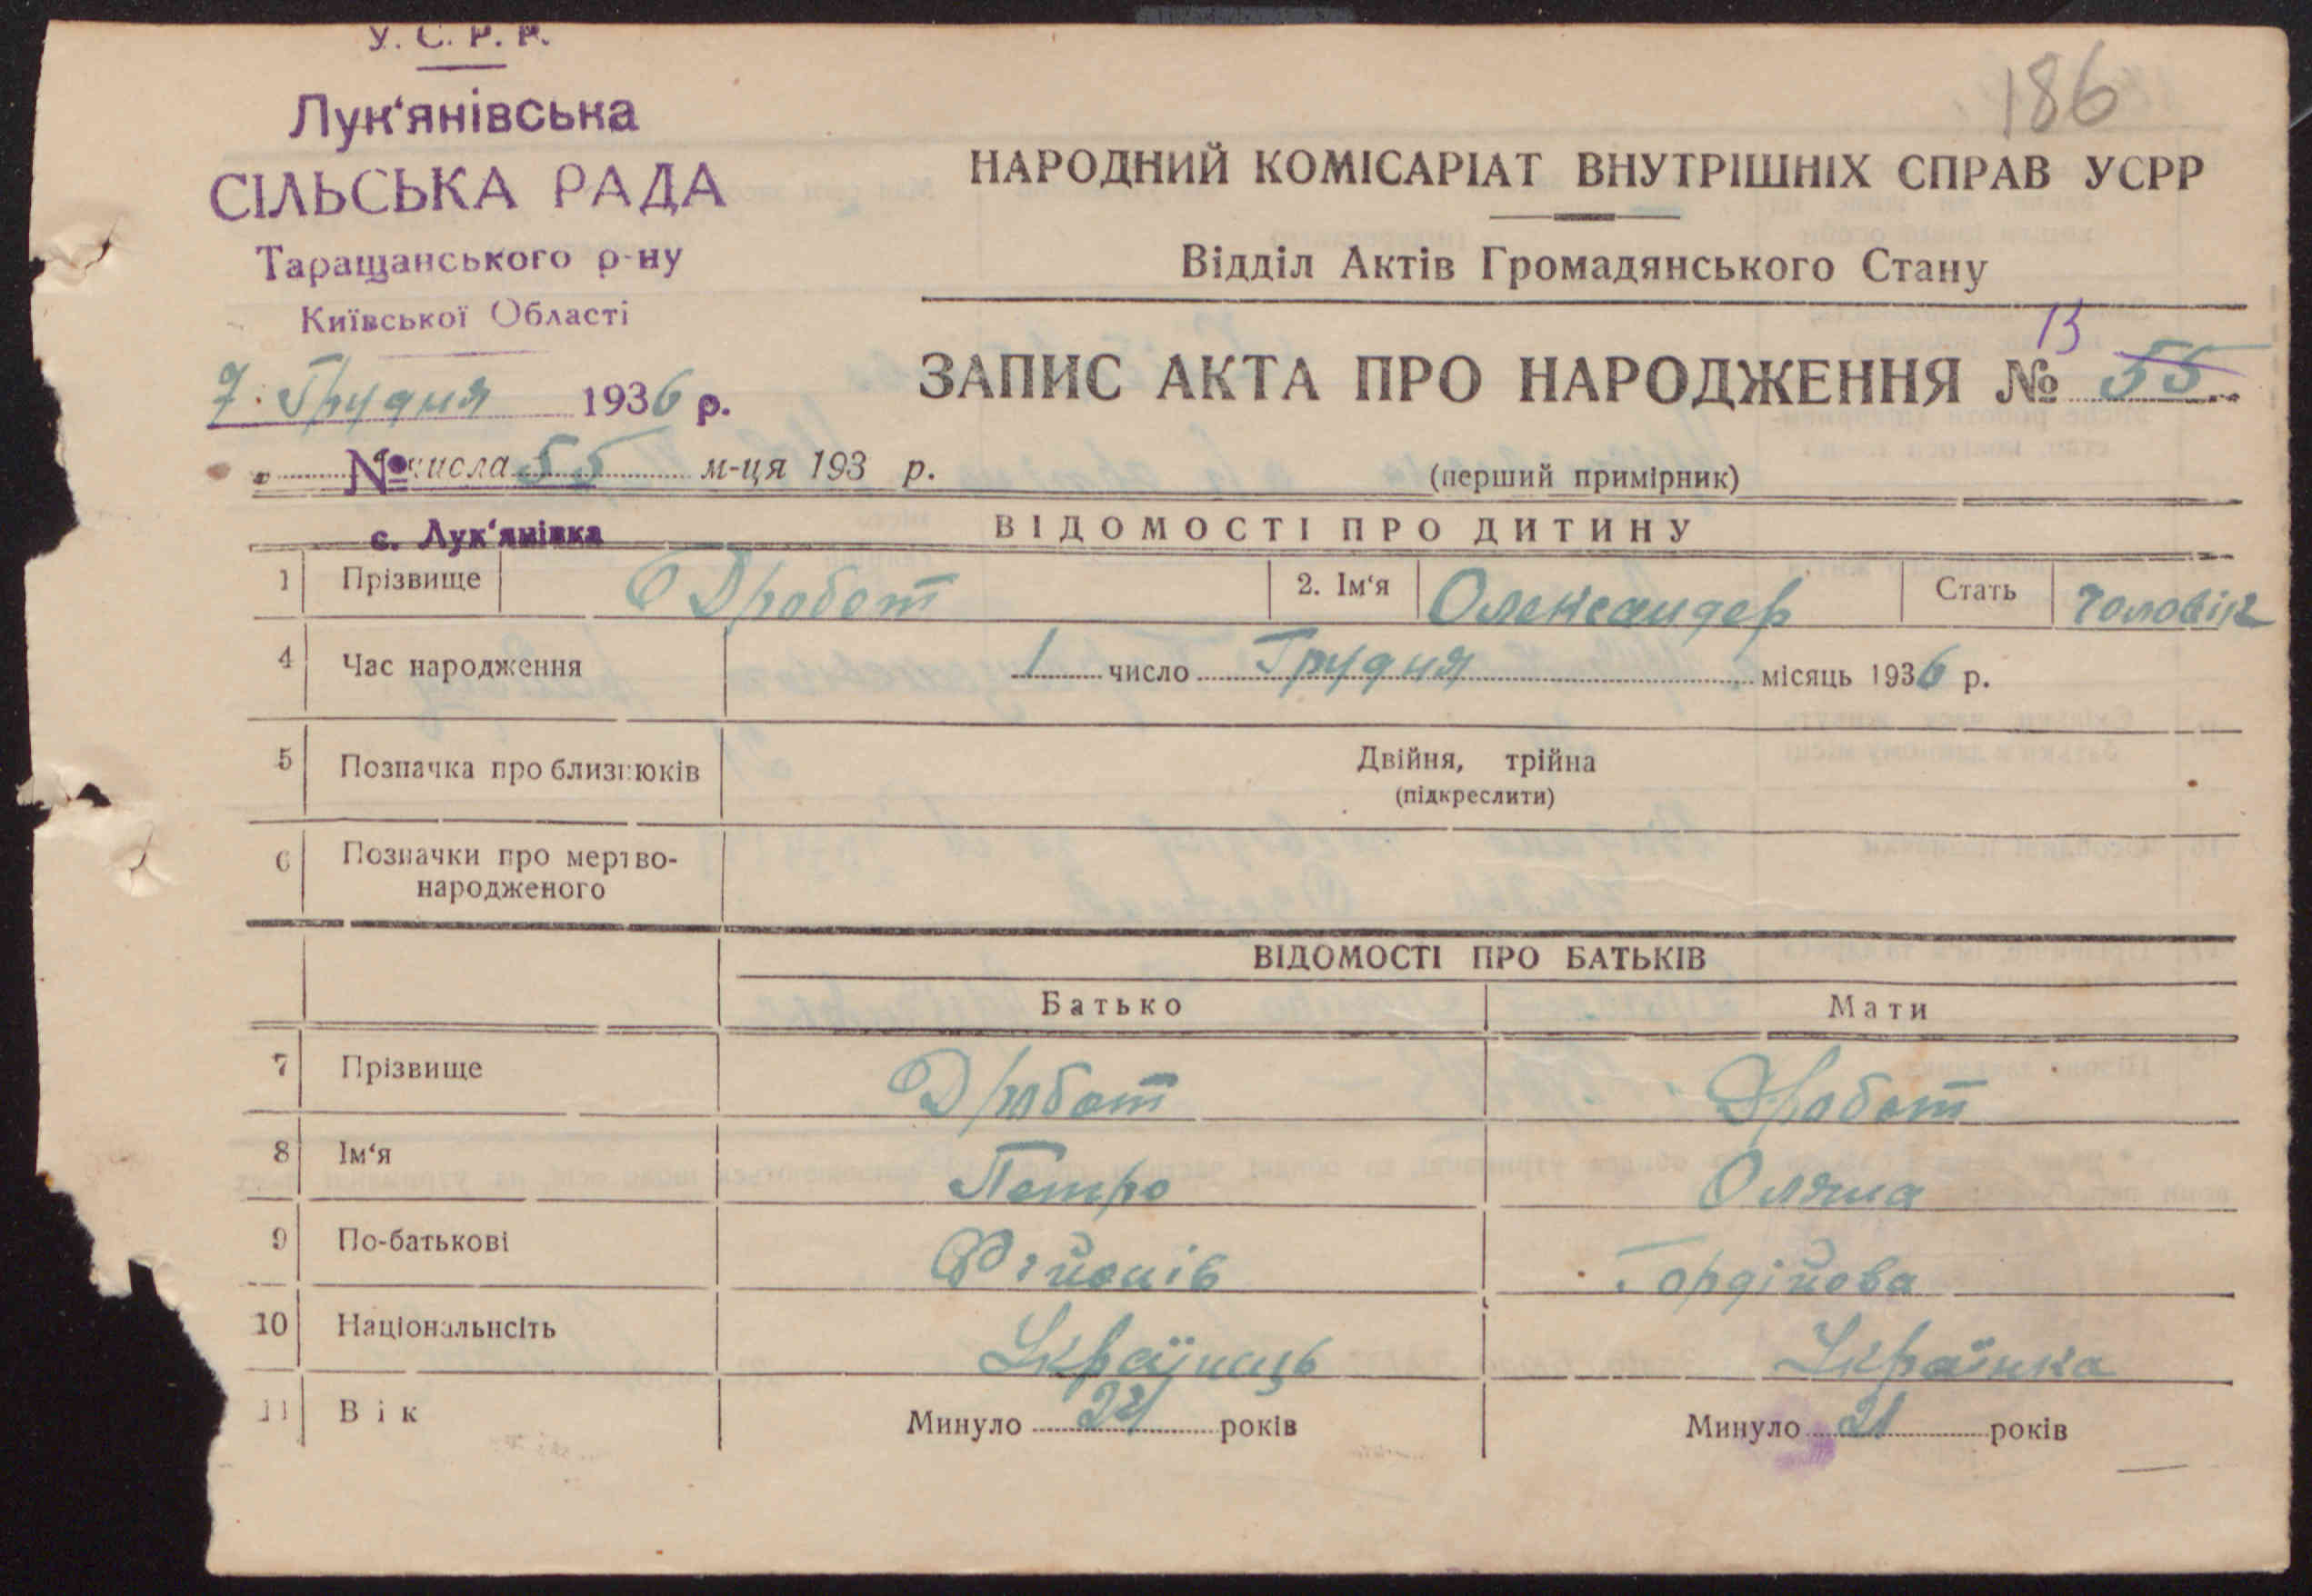 У. С. Р. Р.
Лук‘янівська
СІЛЬСЬКА РАДА
Таращанського р-ну
Київської Області
7. Грудня 1936 р.
№ числа 55 м-ця 193 р.
с. Лук‘янівка
186
НАРОДНИЙ КОМІСАРІАТ ВНУТРІШНІХ СПРАВ УСРР
Відділ Актів Громадянського Стану
13
ЗАПИС АКТА ПРО НАРОДЖЕННЯ № 55
(перший примірник)
ВІДОМОСТІ ПРО ДИТИНУ
1 Прізвище Дробот 2. Ім‘я Олександер Стать Чоловік
4 Час народження 1 число Грудня місяць 1936 р.
5 Позначка про близнюків Двійня, трійна
(підкреслити)
6 Позначки про мертво-
народженого
ВІДОМОСТІ ПРО БАТЬКІВ
Батько Мати
7 Прізвище Дробот Дробот
8 Ім‘я Петро Оляна
9 По-батькові Гордійова
10 Національнсіть Українець Українка
11 Вік Минуло років Минуло 21 років